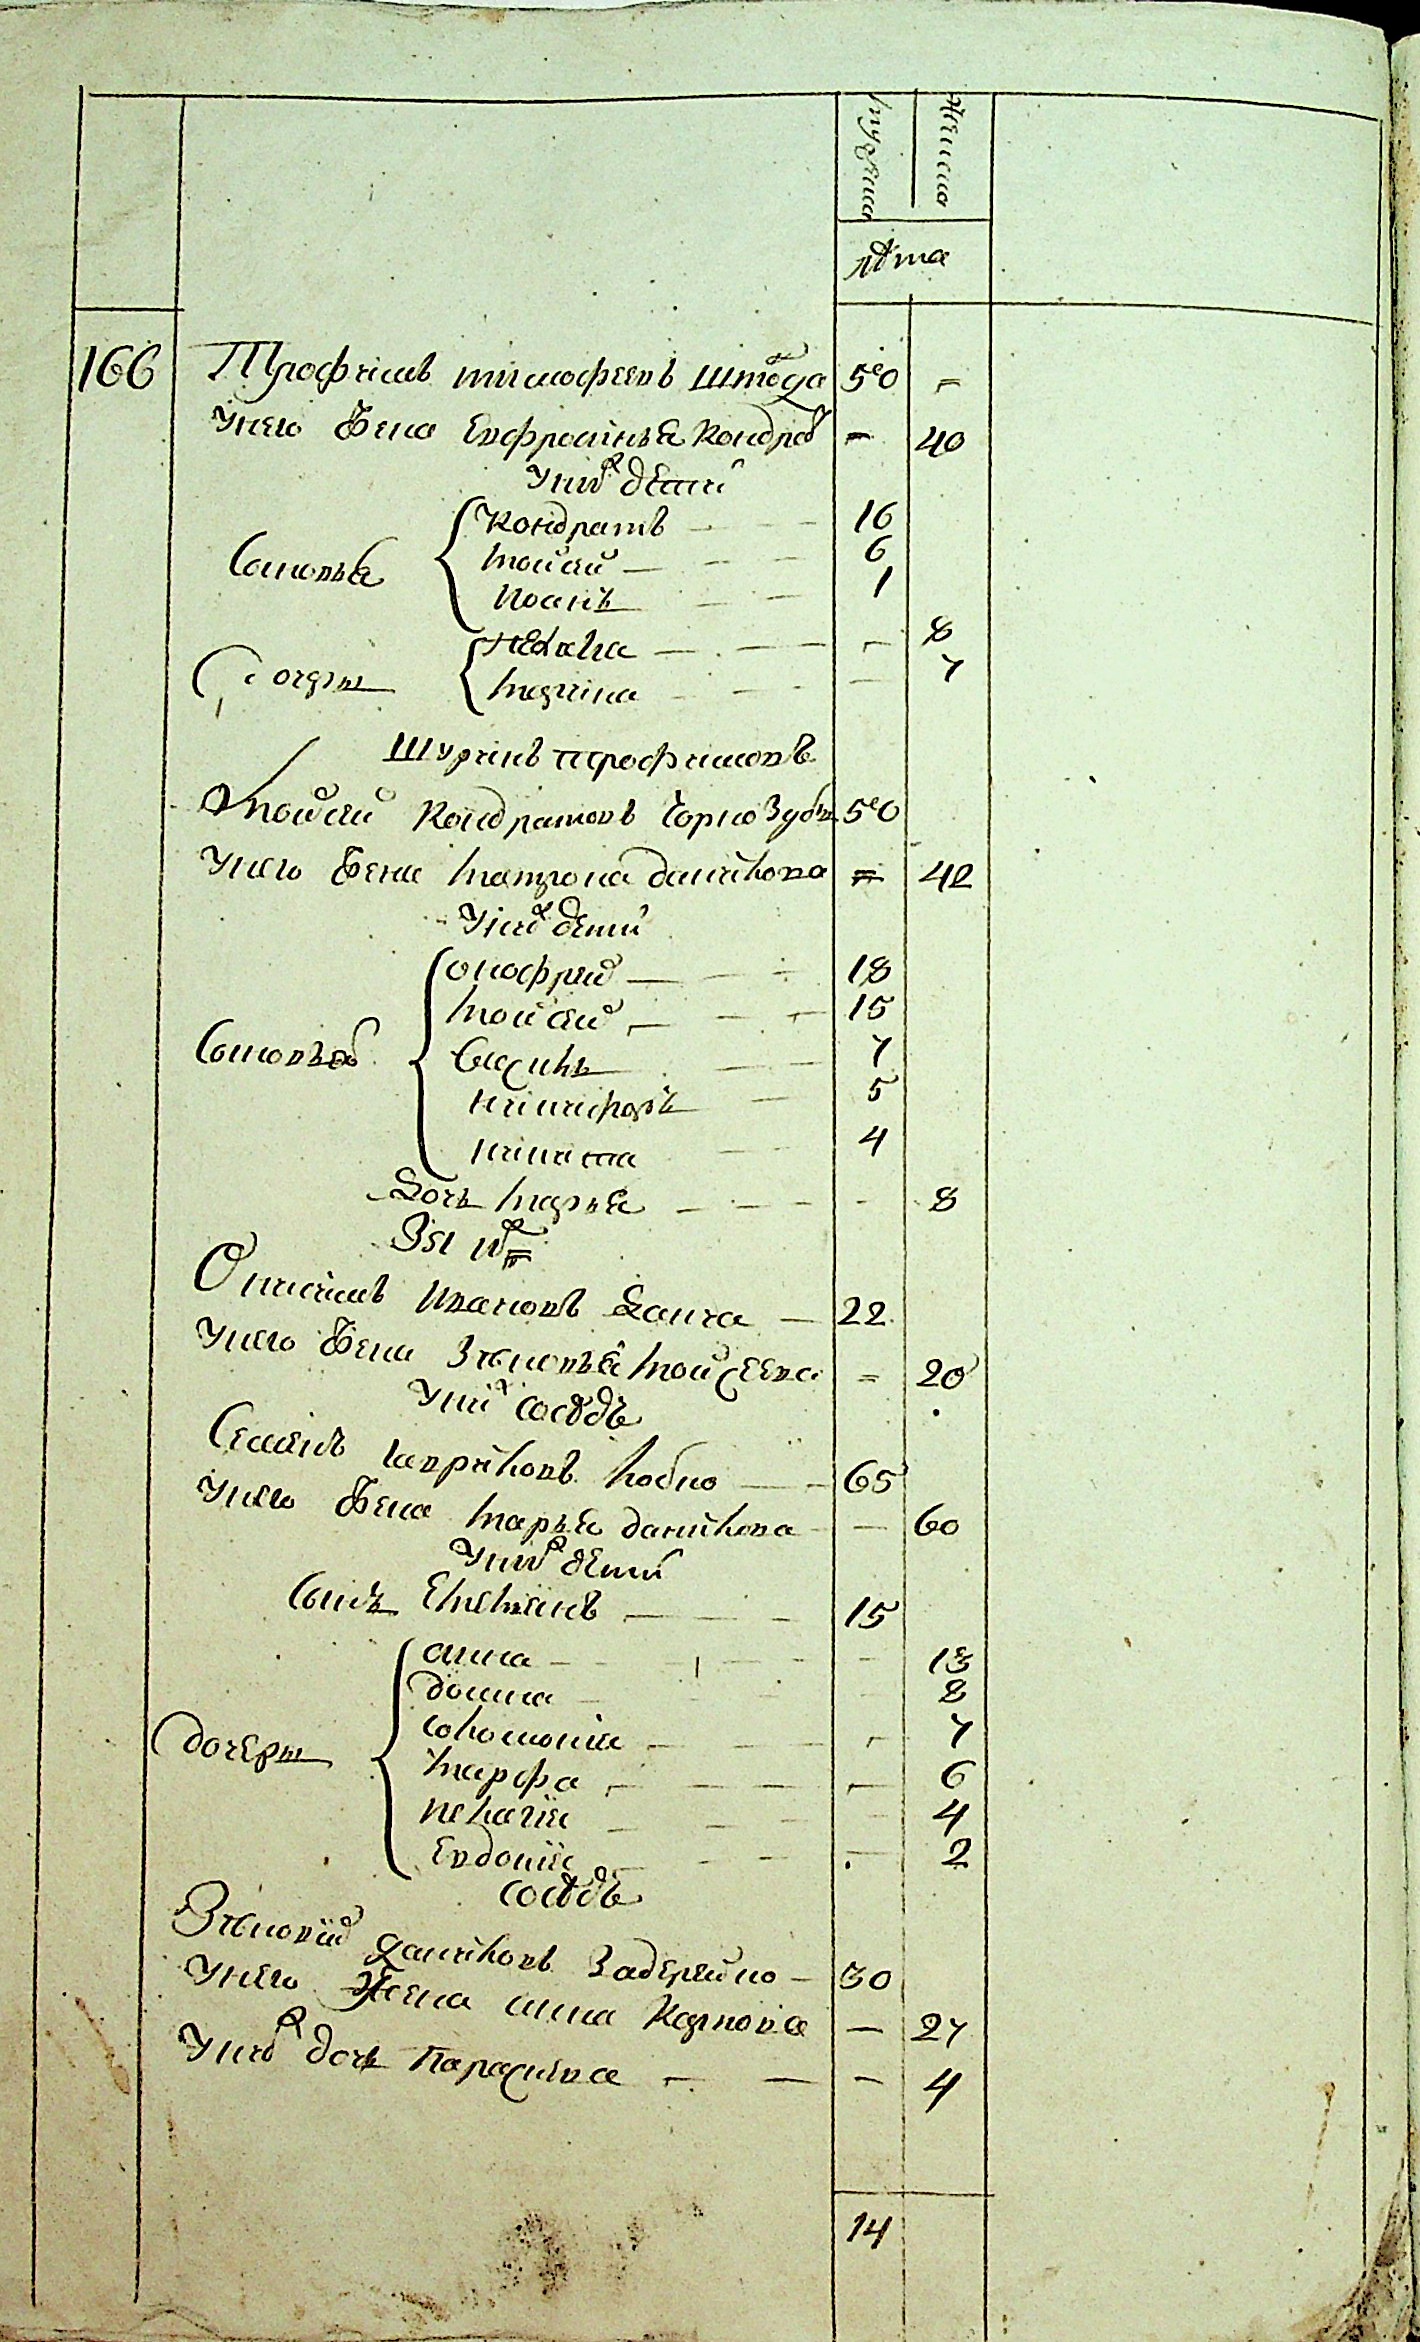 мужеска
женска
лѣта
166 Трофимъ тимофеевъ Штода 50 =
Унего жена Евфросинья Кондрат = 40
Унихъ дети
Кондратъ - - - 16
Сыновья моисей - - - 6
Иванъ - - 1
- - - - 8
дочеры марина - - - - 7
Шуринъ трофимовъ
моисей Кондратовъ Чорнозубъ 50
Унего жена матрона данилова = 42
Унихъ дети
онофрей - - - 18
моисей - - - 15
Сыновья Василь - - 7
никифоръ - 5
никита - - 4
Дочь марья - - - - - 8
Зять ихъ =
Онисимъ Ивановъ - 22
Унего жена Зѣновья моисеева = 20
Унихъ сосѣдъ
Семенъ гавриловъ - - 65
Унего жена марья данилова - - 60
Унихъ дети
Сынъ Емельянъ - - - 15
анна - - - - - - 13
домна - - - - 8
соломонія - - - - 7
дочеры марфа - - - - - 6
пелагія - - - - 4
Евдокія - - - - 2
сосѣдъ
Зѣновій даниловъ Задерейко - 30
Унего Жена анна Карпова - 27
Унихъ дочь Параскѣва - - - 4
14